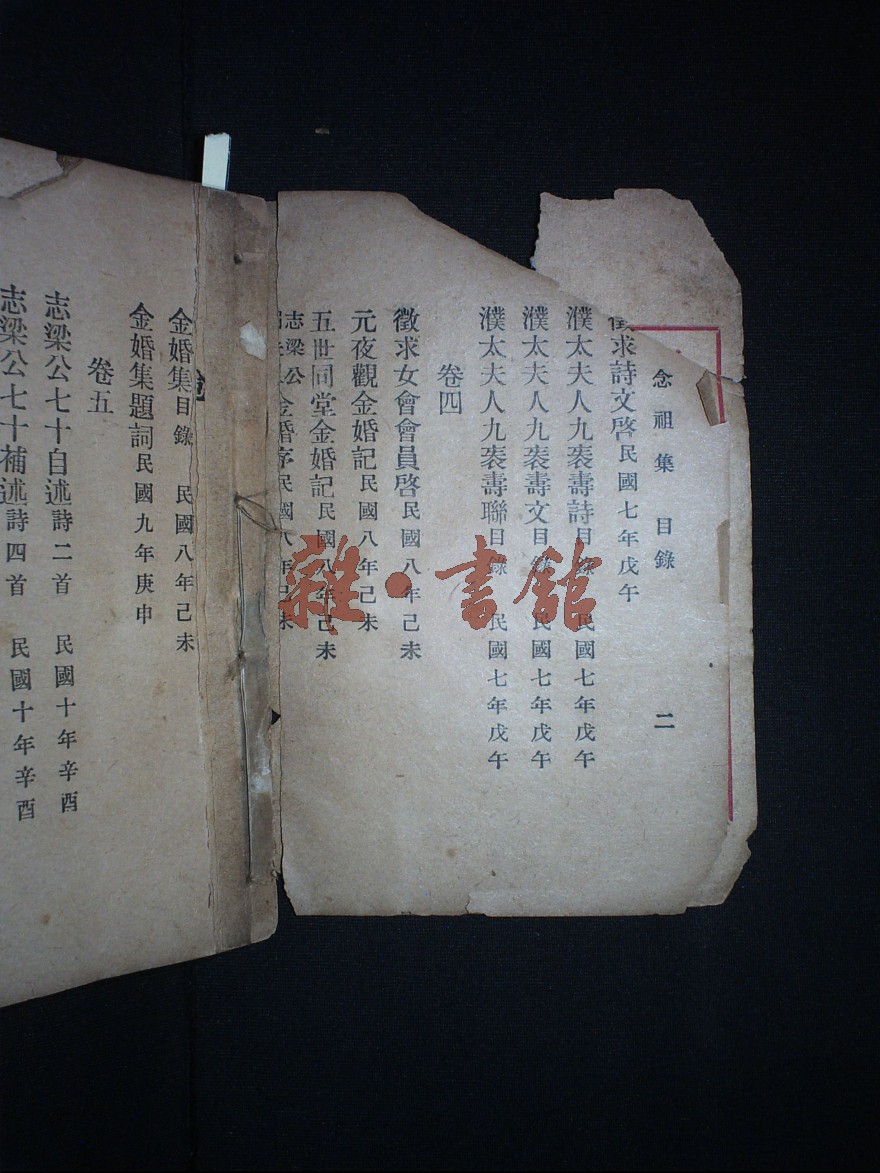 念祖集 目錄 二
徵求詩文啓民國七年戊午
濮太夫人九袠壽詩目錄 民國七年戊午
濮太夫人九袠壽文目錄 民國七年戊午
濮太夫人九袠壽聯目錄 民國七年戊午
卷四
徵求女會會員啓民國八年己未
元夜觀金婚記民國八年己未
五世同堂金婚記民國八年己未
志梁公 金婚序民國八年己未
金婚集目錄 民國八年己未
金婚集題詞民國九年庚申
卷五
志梁公七十自述詩二首 民國十年辛酉
志梁公七十補述詩四首 民國十年辛酉
雜·書館